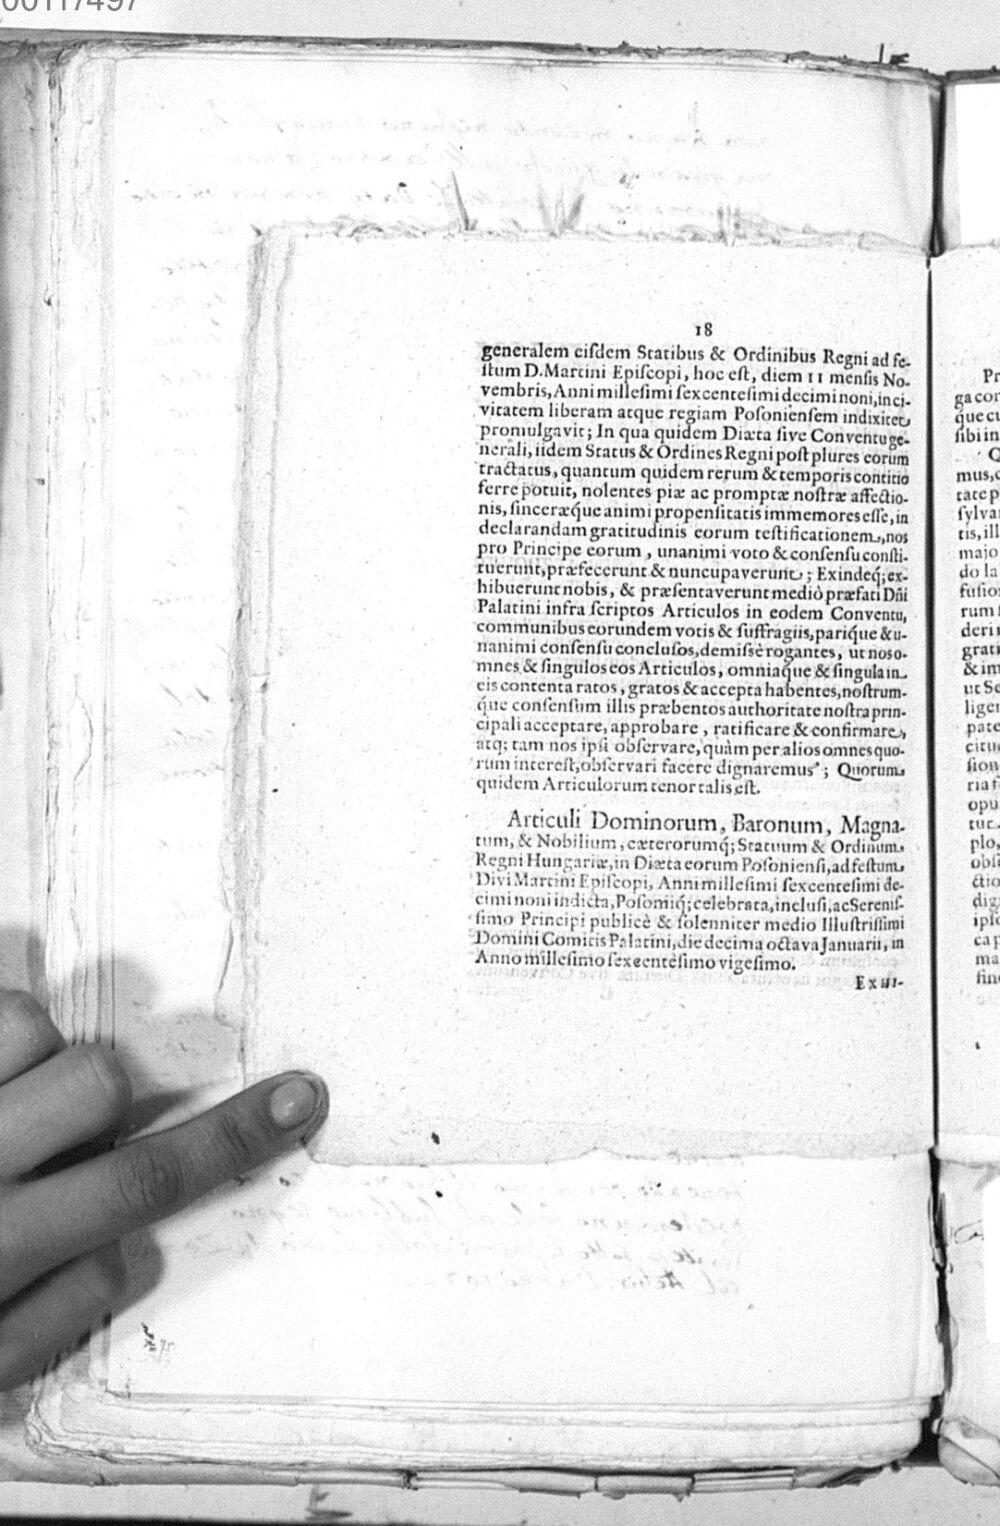 00117497
18
generalem eiſdem Statibus & Ordinibus Regni ad fe-
ſtum D. Martini Epiſcopi, hoc eſt, diem 11 menſis No-
vembris, Anni milleſimi ſexcenteſimi decimi noni, in ci-
vitatem liberam atque regiam Poſonienſem indixit et
promulgavit; In qua quidem Diæta ſive Conventu ge-
nerali, iidem Status & Ordines Regni poſt plures eorum
tractatus, quantum quidem rerum & temporis contitio
ferre potuit, nolentes piæ ac promptæ noſtræ affectio-
nis, ſinceræq́ue animi propenſitatis immemores eſſe, in
declarandam gratitudinis eorum teſtificationem, nos
pro Principe eorum, unanimi voto & conſenſu conſti-
tuerunt, præfecerunt & nuncupaverunt; Exindeq́; ex-
hibuerunt nobis, & præſentaverunt mediò præfati Dñi
Palatini infra ſcriptos Articulos in eodem Conventu,
communibus eorundem votis & ſuffragiis, pariq́ue & u-
nanimi conſenſu concluſos, demiſsè rogantes, ut nos o-
mnes & ſingulos eos Articulos, omniaq́ue & ſingula in
eis contenta ratos, gratos & accepta habentes, noſtrum-
q́ue conſenſum illis præbentos authoritate noſtra prin-
cipali acceptare, approbare, ratificare & confirmare,
atq; tam nos ipſi obſervare, quàm per alios omnes quo-
rum intereſt, obſervari facere dignaremus; Quorum
quidem Articulorum tenor talis eſt.
Articuli Dominorum, Baronum, Magna-
tum, & Nobilium, cæterorumq́; Statuum & Ordinum
Regni Hungariæ, in Diæta eorum Poſonienſi, ad feſtum
Divi Martini Epiſcopi, Anni milleſimi ſexcenteſimi de-
cimi noni indicta, Poſoniiq́; celebrata, incluſi, ac Sereniſ-
ſimo Principi publicè & ſolenniter medio Illuſtriſſimi
Domini Comitis Palatini, die decima octava Januarii, in
Anno milleſimo ſexcentèſimo vigeſimo.
Exhi-
Pr
ga con
que cu
ſibi in
Q
mus, c
tate p
ſylva
tis, ill
majo
do la
fuſio
rum
deri
grati
& im
ut Se
liger
pate
citu
ſion
ria
opu
tut
plo,
obſ
ctio
dig
ipſ
cap
ma
fin